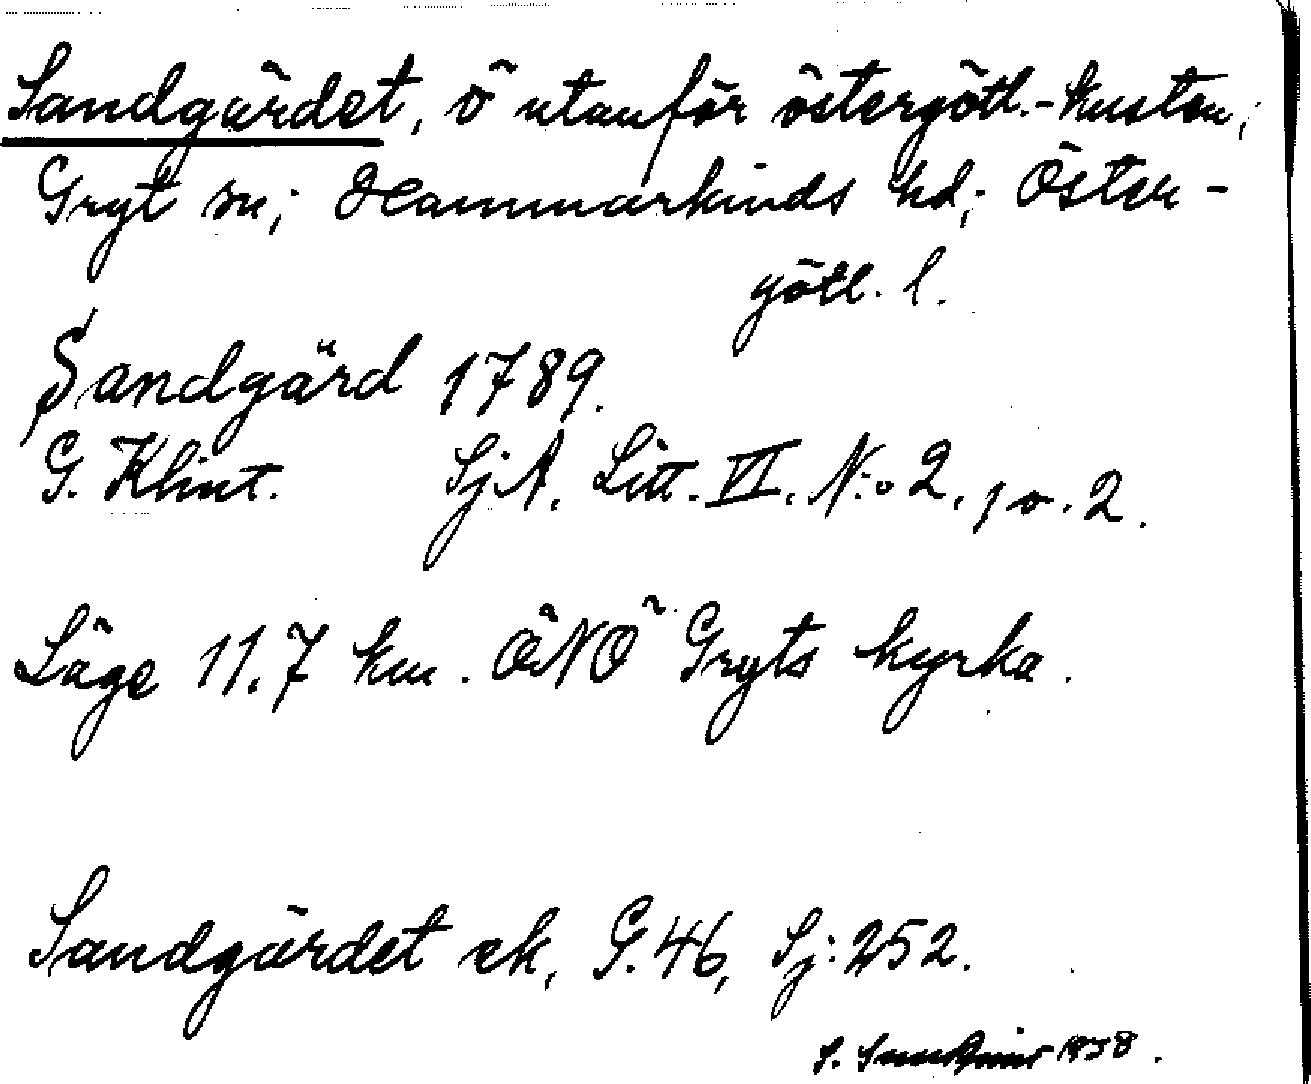 Sandgärdet, ö utanför östergötl.-kusten;
Gryt sn; Hammarkinds hd; Öster-
götl. l.
Sandgärd 1789.
G. Klint. SjA. Litt. VI. N:o 2. p. 2.
Läge 11.7 km. ÖNÖ Gryts kyrka.
Sandgärdet ek, G. 46, Sj: 252.
S. 1938.